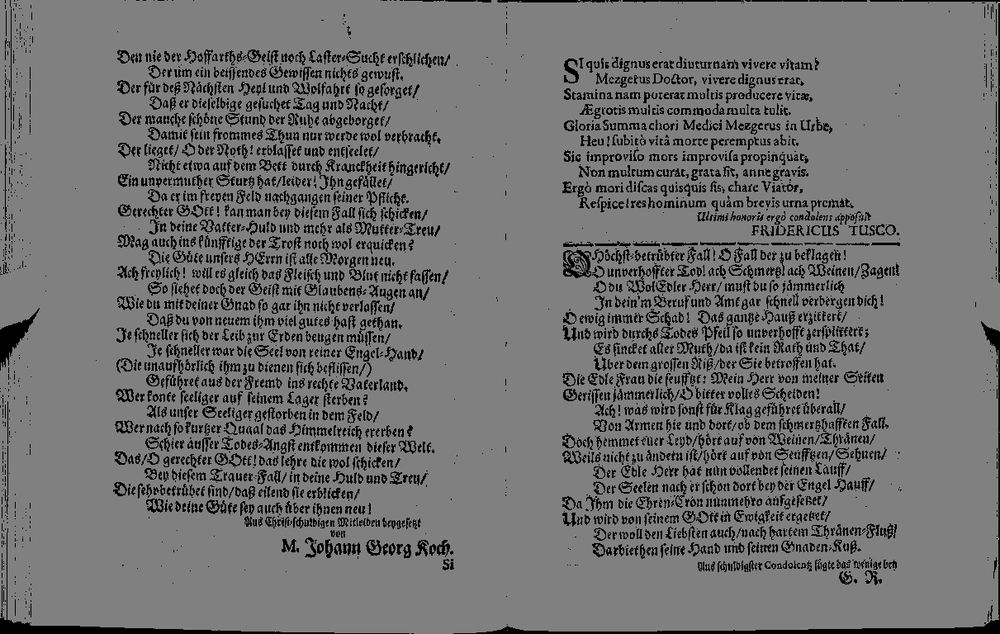 Den nie der Hoffarths-Geist noch Laster-Sucht erschlichen/
Der um ein beissendes Gewissen nichts gewust.
Der für deß Nächsten Heyl und Wolfahrt so gesorget/
Daß er dieselbige gesuchet Tag und Nacht/
Der manche schöne Stund der Ruhe abgeborget/
Damit sein frommes Thun nur werde wol verbracht.
Der lieget/ O der Noth! erblasset und entseelet/
Nicht etwa auf dem Bett durch Kranckheit hingericht/
Ein unvermuther Sturtz hat/leider! Ihn gefället/
Da er im freyen Feld nachgangen seiner Pflicht.
Gerechter GOtt! kan man bey diesem Fall sich schicken/
In deine Vatter-Huld und mehr als Mutter-Treu/
Mag auch ins künfftige der Trost noch wol erquicken?
Die Güte unsers HErrn ist alle Morgen neu.
Ach freylich! will es gleich das Fleisch und Blut nicht fassen/
So siehet doch der Geist mit Glaubens-Augen an/
Wie du mit deiner Gnad so gar ihn nicht verlassen/
Daß du von neuem ihm viel gutes hast gethan.
Je schneller sich der Leib zur Erden beugen müssen/
Je schneller war die Seel von reiner Engel-Hand/
(Die unaufhörlich ihm zu dienen sich beflissen/)
Geführet aus der Fremd ins rechte Vaterland.
Wer konte seeliger auf seinem Lager sterben?
Als unser Seeliger gestorben in dem Feld/
Wer nach so kurtzer Quaal das Himmelreich ererben?
Schier ausser Todes-Angst entkommen dieser Welt.
Das/O gerechter GOtt! das lehre die wol schicken/
Bey diesem Trauer-Fall/in deine Huld und Treu/
Die sehr betrübet sind/daß eilend sie erblicken/
Wie deine Güte sey auch über ihnen neu!
Aus Christ-schuldigen Mitleiden beygesetzt
von
M. Johann Georg Koch.
Si
SI quis dignus erat diuturnam vivere vitam?
Mezgerus Doctor, vivere dignus erat,
Stamina nam poterat multis producere vitæ,
Ægrotis multis commoda multa tulit.
Gloria Summa chori Medici Mezgerus in Urbe,
Heu! subitò vitâ morte peremptus abit.
Sic improviso mors improvisa propinquat,
Non multum curat, grata sit, anne gravis.
Ergò mori discas quisquis sis, chare Viator,
Respice! res hominum quàm brevis urna premat.
Ultimi honoris ergò condolens apposuit
FRIDERICUS TUSCO.
O Höchst-betrübter Fall! O Fall der zu beklagen!
O unverhoffter Tod! ach Schmertz! ach Weinen/Zagen!
O du WolEdler Herr/ must du so jämmerlich
In dein'm Beruf und Amt gar schnell verbergen dich!
O ewig immer Schad! Das gantze Hauß erzittert/
Und wird durchs Todes Pfeil so unverhofft zersplittert;
Es sincket aller Muth/da ist kein Rath und That/
Über dem grossen Riß/der Sie betroffen hat.
Die Edle Frau die seufftzt: Mein Herr von meiner Seiten
Gerissen jämmerlich/O bitter volles Scheiden!
Ach! was wird sonst für Klag geführet überall/
Von Armen hie und dort/ob dem schmertzhafften Fall.
Doch hemmet euer Leyd/hört auf von Weinen/Thränen/
Weils nicht zu ändern ist/hört auf von Seufftzen/Sehnen/
Der Edle Herr hat nun vollendet seinen Lauff/
Der Seelen nach er schon dort bey der Engel Hauff/
Da Ihm die Ehren-Cron nunmehro aufgesetzet/
Und wird von seinem GOtt in Ewigkeit ergetzet/
Der woll den Liebsten auch/nach hartem Thränen-Fluß/
Darbiethen seine Hand und seinen Gnaden-Kuß.
Aus schuldigster Condolentz fügte das wenige bey
G. R.